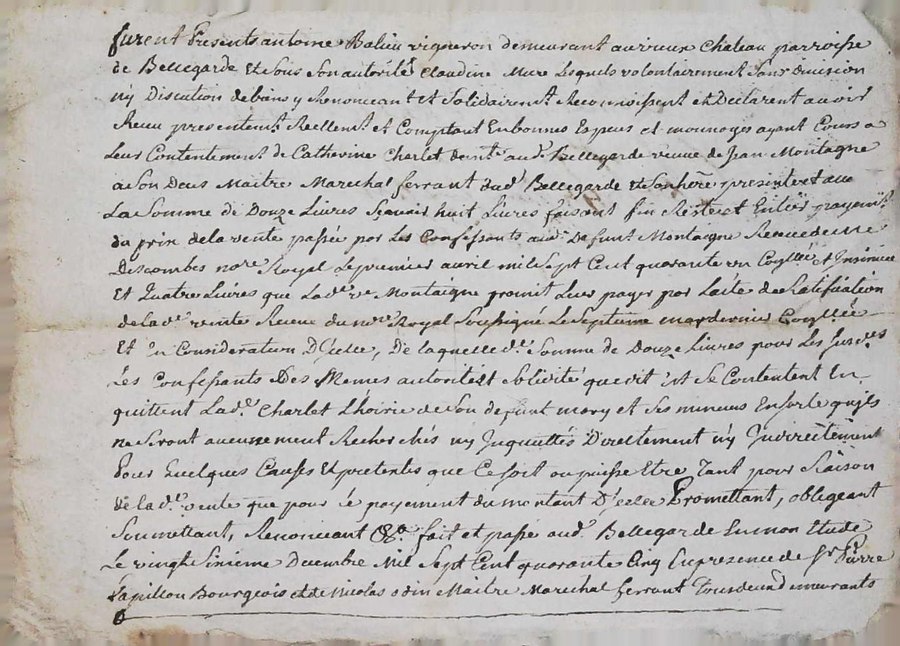 furent Presents antoine Balieu vigneron demeurant au vieux Chateau parroisse
de Bellegarde Et Sous Son autorité Claudine Mure Lesquels volontairement Sans Division
n'y Discution de biens y Renonceant et Solidairemt. Reconnoissent et Declarent avoir
Receu presentemt. Reellemt. et Comptant En bonnes Especes et monnoyes ayant Cours a
Leur Contentement de Catherine Charlet demte. aud. Bellegarde veuve de Jean Montagne
a Son Deces Maitre Marechal ferrant dud. Bellegarde et Son here. presente et acc
La Somme de Douze Livres Sçavoir huit Livres faisant fin Reste et Entier payemt.
du prix de la vente passée par Les Confessants aud. Defunt. Montagne Receue de Me
Descombes nore. Royal Le premier avril mil Sept Cent quarante un Coñllée et Insinuée
Et Quatre Livres que Lade. ve. Montaigne promit Leur payer par L'acte de Ratification
de lade. vente Receue du nore. Royal Soussigné Le Septieme may dernier Coñllée
Et En Consideration D'Icelle, De laquelle de. Somme de Douze Livres pour Les Susdes.
Les Confessants Des Memes autorité et solidité que dit Est Se Contentent En
quittent Lade. Charlet L'hoirie de Son defunt mary et Ses mineurs En Sorte qu'ils
ne Seront aucunement Recherchés n'y Inquiettés Directement n'y Indirectement
Pour quelques Causes Et pretextes que Ce Soit ou puisse Etre Tant pour Raison
de lade. vente que pour le payement du montant D'icelle Promettant, obligeant
Soumettant, Renonceant &a. fait et passé aud. Bellegarde En mon Etude
Le vingt Sixieme Decembre Mil Sept Cent quarante Cinq En presence de Sr. Pierre
Papillon Bourgeois et de Nicolas odin Maitre Marechal ferrant Tous deux demeurants